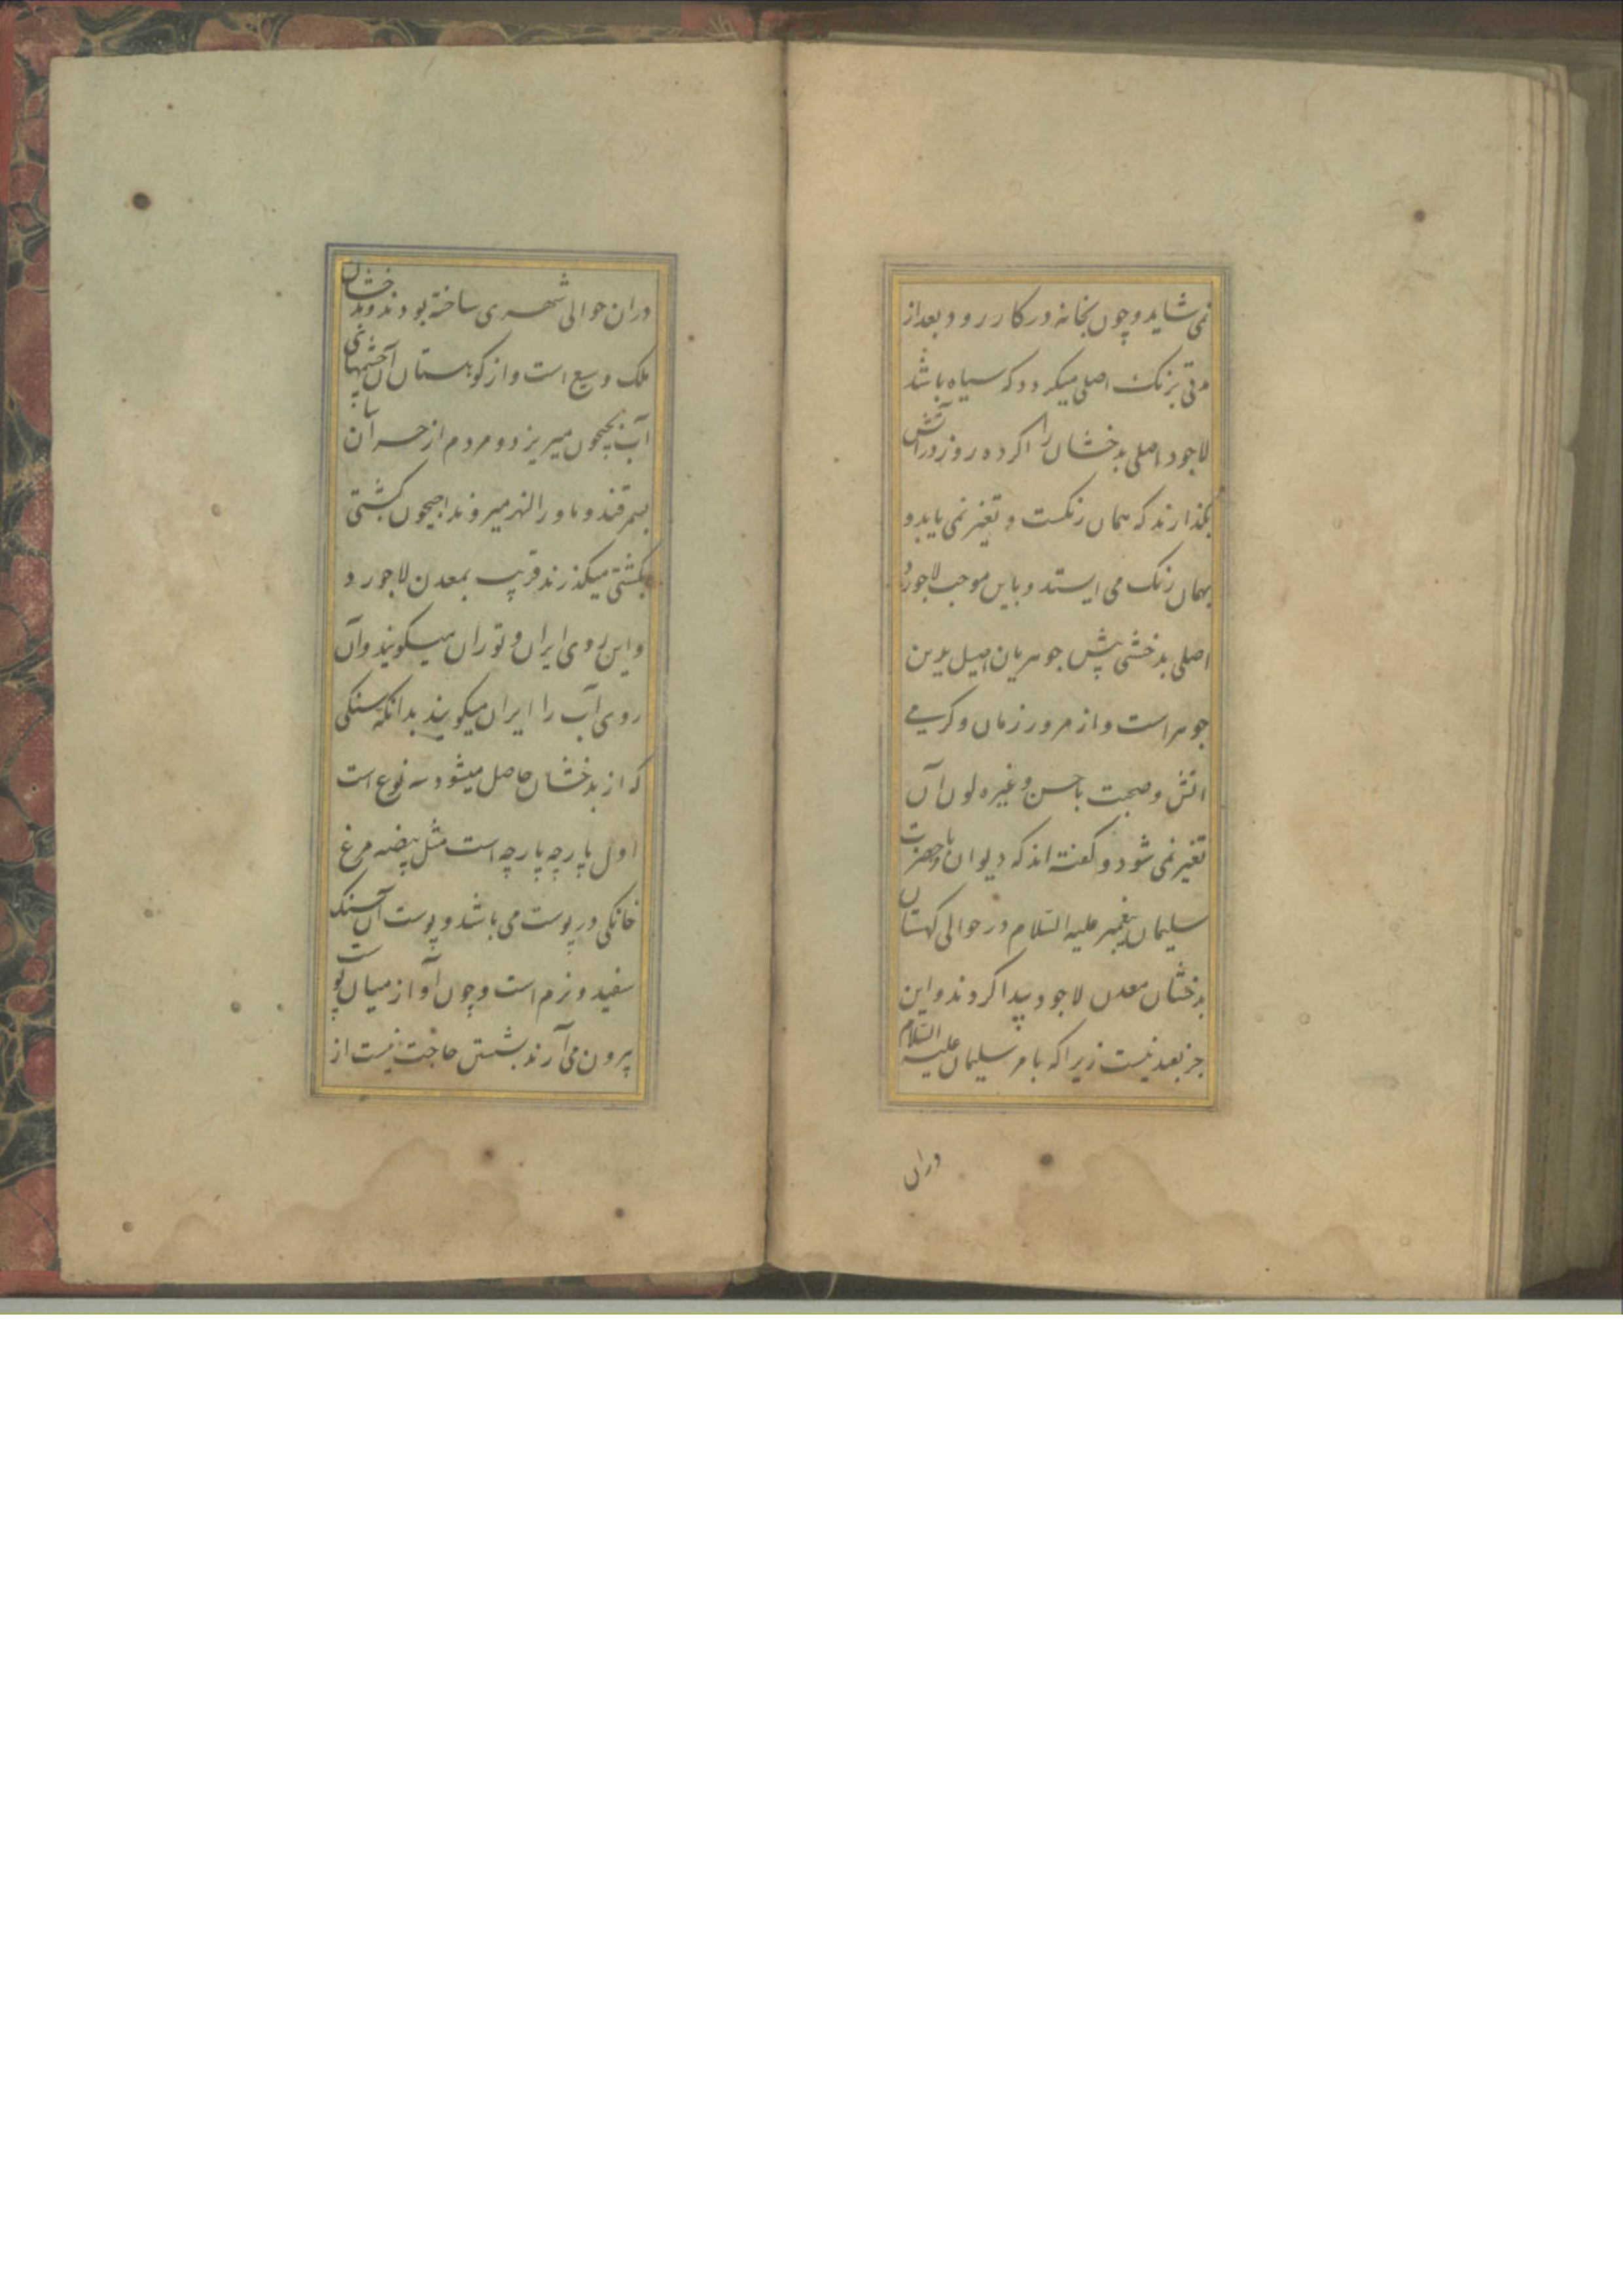 نمی شاید و چون بخانه در کار رود بعد از
مدتی برنک اصلی میکردد که سیاه باشد
لاجود اصلی بدخشان را اکرده روز در آتش
بکذارند که همان رنکست و تغیر نمی یابد و
بهمان رنک می ایستد و باین موجب لاجورد
اصلی بدخشی پیش جوهریان اصیل بدین
جوهر است و از مرور زمان و کرمی
اتش و صحبت باحسن و غیره لون آن
تغیر نمی شود و کفته اند که دیوان با حضرت
سلیمان پیغمبر علیه السلام در حوالی کهستان
بدخشان معدن لاجود پیدا کردند و این
جز بعد نیست زیرا که بامر سلیمان علیه السلام
دران
دران حوالی شهری ساخته بودند و بدخشان
ملک وسیع است و از کوهستان آن چشمهای
آب بجیحون میریزد و مردم از خراسان
بسمرقند و ماورالنهر میروند اجیحون کشتی
بکشتی میکذرند قریب بمعدن لاجورد
و این روی ایران و توران میکویند و آن
روی آب را ایران میکویند بدانکه سنکی
که از بدخشان حاصل میشود سه نوع است
اول پارچه پارچه است مثل بیضه مرغ
خانکی در پوست می باشد و پوست آن سنک
سفید و نرم است و چون او از میان پوست
بیرون می آرند بشستن حاجت نیست از